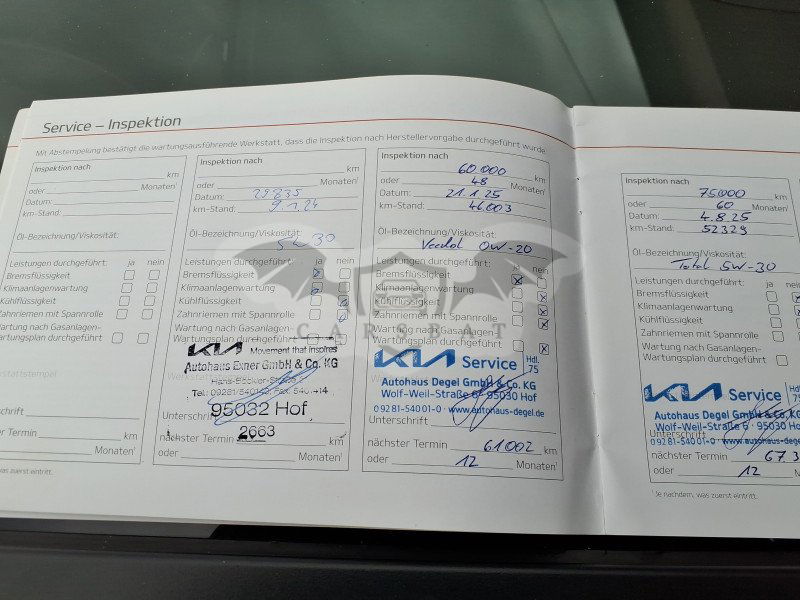 Service – Inspektion
Mit Abstempelung bestätigt die wartungsausführende Werkstatt, dass die Inspektion nach Herstellervorgabe durchgeführt wurde.
Inspektion nach
km
oder Monaten¹
Datum:
km-Stand:
Öl-Bezeichnung/Viskosität:
Leistungen durchgeführt: ja nein
Bremsflüssigkeit
Klimaanlagenwartung
Kühlflüssigkeit
Zahnriemen mit Spannrolle
Wartung nach Gasanlagen-
Wartungsplan durchgeführt
schrift
Termin km
Monaten¹
was zuerst eintritt.
Inspektion nach
km
oder Monaten¹
Datum: 29235
km-Stand: 9.1.24
Öl-Bezeichnung/Viskosität:
5W30
Leistungen durchgeführt: ja nein
Bremsflüssigkeit
Klimaanlagenwartung
Kühlflüssigkeit
Zahnriemen mit Spannrolle
Wartung nach Gasanlagen-
Wartungsplan durchgeführt
KIA Movement that inspires
Autohaus Exner GmbH & Co. KG
95032 Hof
Unterschrift
2663
nächster Termin km
oder Monaten¹
Inspektion nach
60.000 km
oder 48 Monaten¹
Datum: 21.1.25
km-Stand: 46.003
Öl-Bezeichnung/Viskosität:
Veedol 0W-20
Leistungen durchgeführt: ja nein
Bremsflüssigkeit
Klimaanlagenwartung
Kühlflüssigkeit
Zahnriemen mit Spannrolle
Wartung nach Gasanlagen-
Wartungsplan durchgeführt
KIA Service Hdl. 75
Autohaus Degel GmbH & Co. KG
Wolf-Weil-Straße 6 · 95030 Hof
0 92 81-540 01-0 · www.autohaus-degel.de
Unterschrift
nächster Termin 61002 km
oder 12 Monaten¹
Inspektion nach
75.000 km
oder 60 Monaten¹
Datum: 4.8.25
km-Stand: 52329
Öl-Bezeichnung/Viskosität:
Total 5W-30
Leistungen durchgeführt: ja nein
Bremsflüssigkeit
Klimaanlagenwartung
Kühlflüssigkeit
Zahnriemen mit Spannrolle
Wartung nach Gasanlagen-
Wartungsplan durchgeführt
KIA Service Hdl.
Autohaus Degel GmbH & Co. KG
Wolf-Weil-Straße 6 · 95030 Hof
0 92 81-540 01-0 · www.autohaus-degel
Unterschrift
nächster Termin 67 3
oder 12 Monaten¹
¹Je nachdem, was zuerst eintritt.
CARSBAT